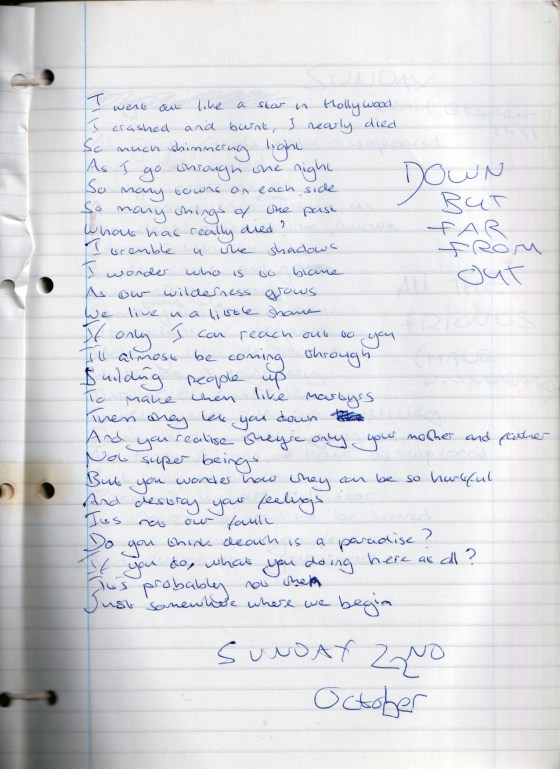 I went out like a star in Hollywood
I crashed and burnt, I nearly died
So much shimmering light
As I go through the night
So many towns on each side
So many things of the past
Whats has really died?
I tremble in the shadows
I wonder who is to blame
As our wilderness grows
We live in a little shame
If only I can reach out to you
I'll almost be coming through
Building people up
To make them like martyrs
Then they let you down
And you realise they're only your mother and father
Not super beings
But you wonder how they can be so hurtful
And destroy your feelings
Its not our fault
Do you think death is a paradise?
If you do, what you doing here at all?
It's probably not then
Just somewhere where we begin
DOWN
BUT
FAR
FROM
OUT
SUNDAY 22ND
October